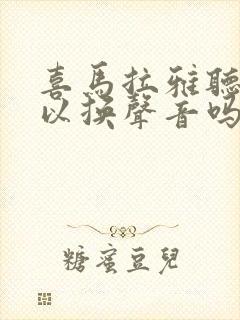 喜馬拉雅聽
以換聲音嗎
糖蜜豆兒